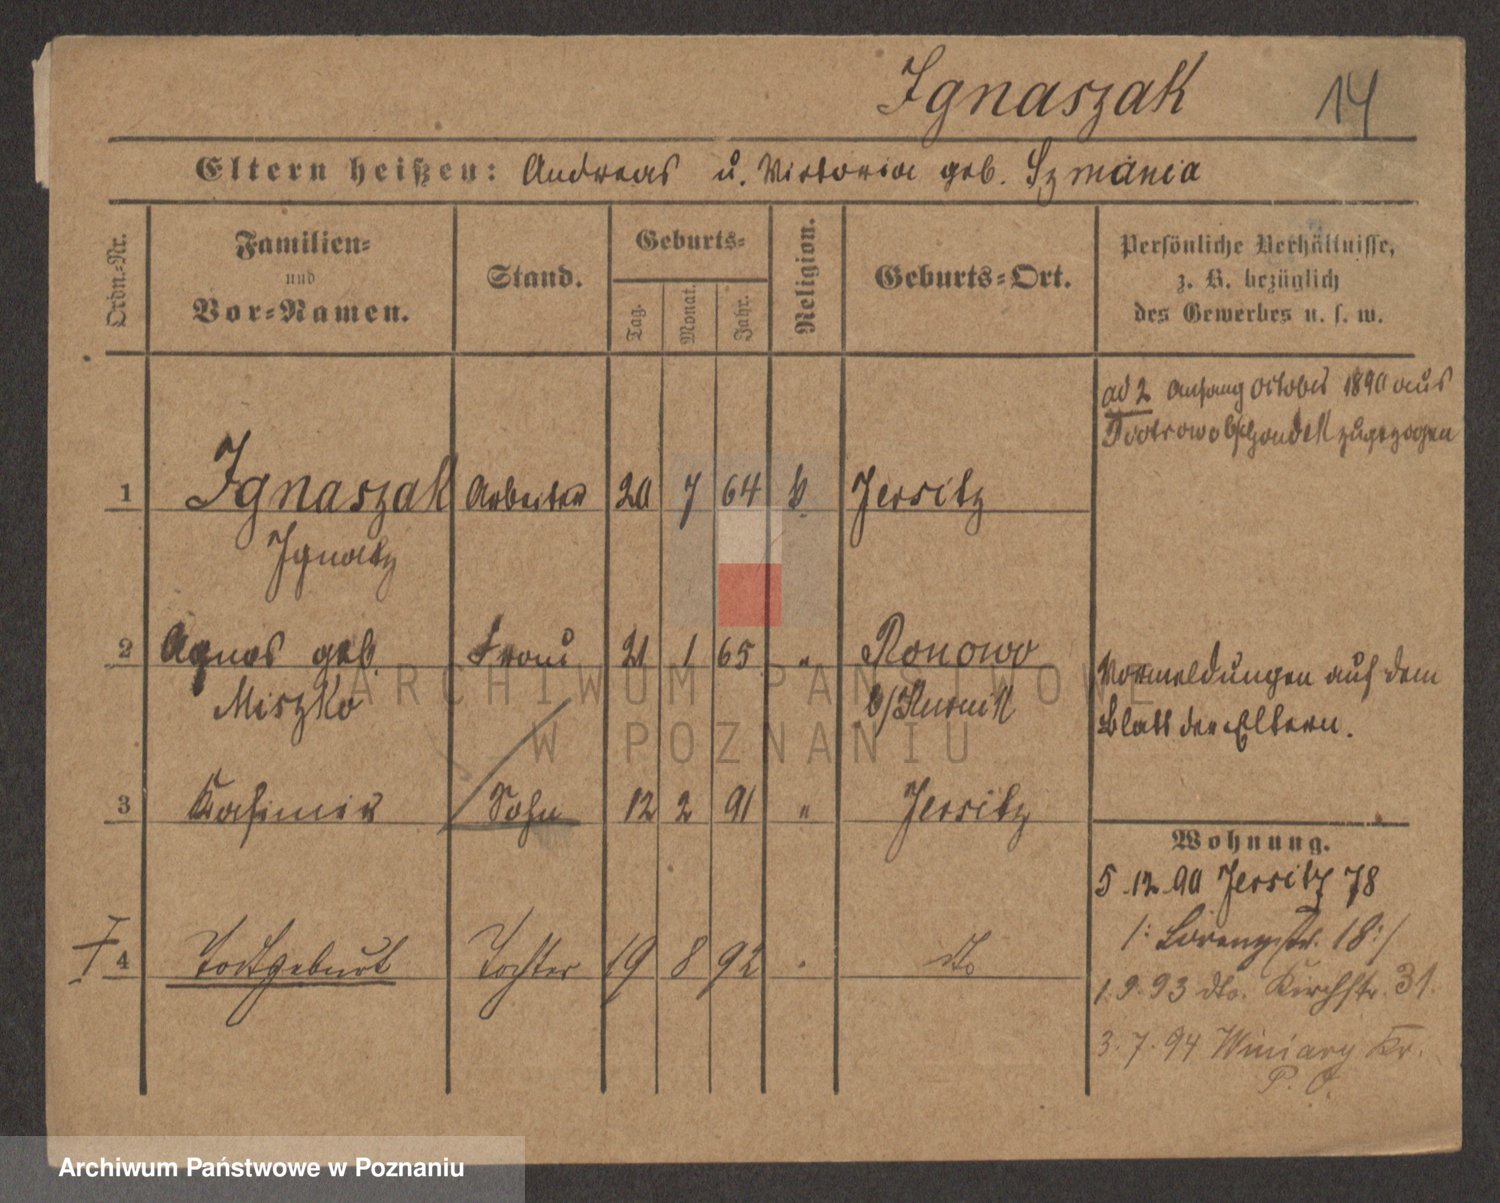 Ignaszak 14
Eltern heißen: Andreas u. Victoria geb. Szmania
Ordn.-Nr.
Familien-
und
Vor-Namen.
Stand.
Geburts-
Tag.
Monat.
Jahr.
Religion.
Geburts-Ort.
Persönliche Verhältnisse,
z. B. bezüglich
des Gewerbes u. s. w.
ad 2 Anfang October 1890 aus
zugezogen
1 Ignaszak Arbeiter 20 7 64 k Jersitz
Ignatz
2 Agnes geb. Frau 21 1 65 " Ronowo
Miszko b/Kurnik
Vormeldungen auf dem
Blatt der Eltern.
3 Kasimir Sohn 12 2 91 " Jersitz
Wohnung.
5.12.90 Jersitz 78
/: Lorenzstr. 18 :/
4 Todtgeburt Tochter 19 8 92 " dto
1.9.93 dto. Kirchstr. 31.
3.7.94 Winiary Kr.
P. O.
ARCHIWUM PAŃSTWOWE
W POZNANIU
Archiwum Państwowe w Poznaniu